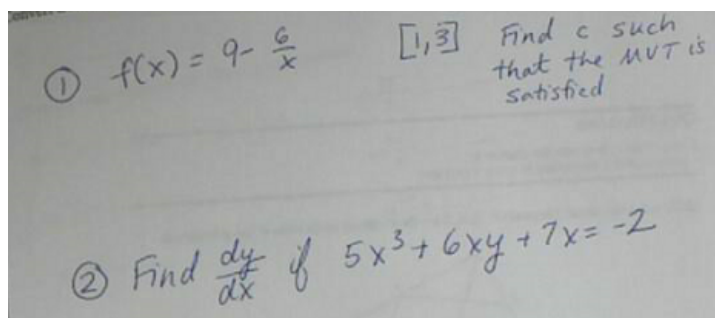 ① f(x) = 9 - 6/x [1,3] Find c such
that the MVT is
satisfied
② Find dy/dx if 5x³ + 6xy + 7x = -2